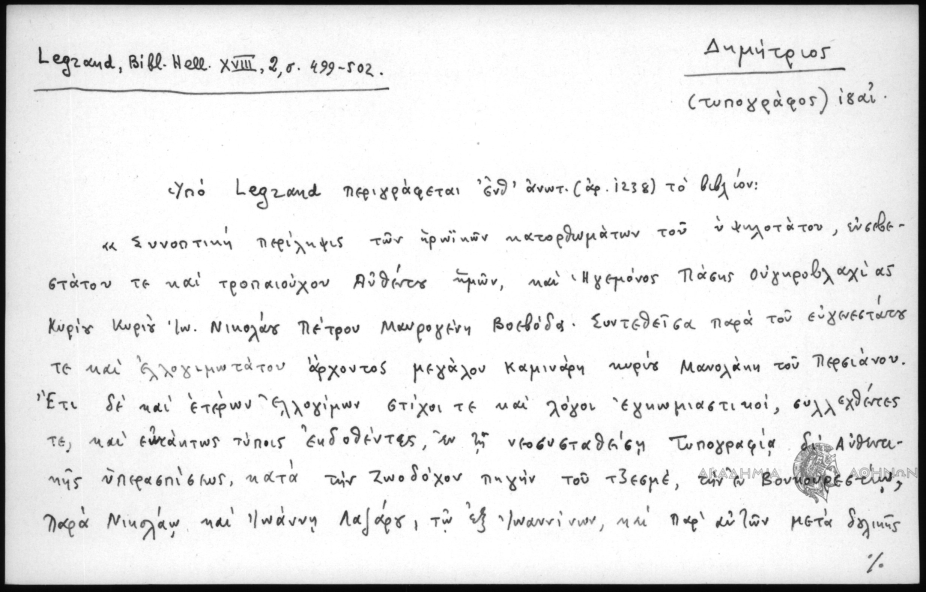 Legrand, Bibl. Hell. XVIII, 2, σ. 499-502.
Δημήτριος
(τυπογράφος) ιθαϊ.
Ὑπό Legrand περιγράφεται ἐνθ' ἀνωτ. (ἀρ. 1238) τό βιβλίον:
« Συνοπτική περίληψις τῶν ἡρωϊκῶν κατορθωμάτων τοῦ ὑψηλοτάτου, εὐσεβε-
στάτου τε καί τροπαιούχου Αὐθέντου ἡμῶν, καί Ἡγεμόνος Πάσης Οὐγκροβλαχίας
Κυρίου Κυρίου Ἰω. Νικολάου Πέτρου Μαυρογένη Βοεβόδα. Συντεθεῖσα παρά τοῦ εὐγενεστάτου
τε καί ἐλλογιμωτάτου ἄρχοντος μεγάλου Καμινάρη κυρίου Μανολάκη τοῦ Περσιάνου.
Ἔτι δέ καί ἑτέρων Ἐλλογίμων στίχοι τε καί λόγοι Ἐγκωμιαστικοί, συλλεχθέντες
τε, καί εὐτάκτως τύποις Ἐκδοθέντες, Ἐν τῇ νεοσυσταθείσῃ Τυπογραφίᾳ δι' Αὐθεντι-
κῆς ὑπερασπίσεως, κατά τήν Ζωοδόχον πηγήν τοῦ τζεσμέ, τήν ἐν Βουκουρεστίῳ,
Παρά Νικολάῳ καί Ἰωάννῃ Λαζάρου, τῷ ἐξ Ἰωαννίνων, καί παρ' αὐτῶν μετά δουλικῆς
ΑΚΑΔΗΜΙΑ ΑΘΗΝΩΝ
%